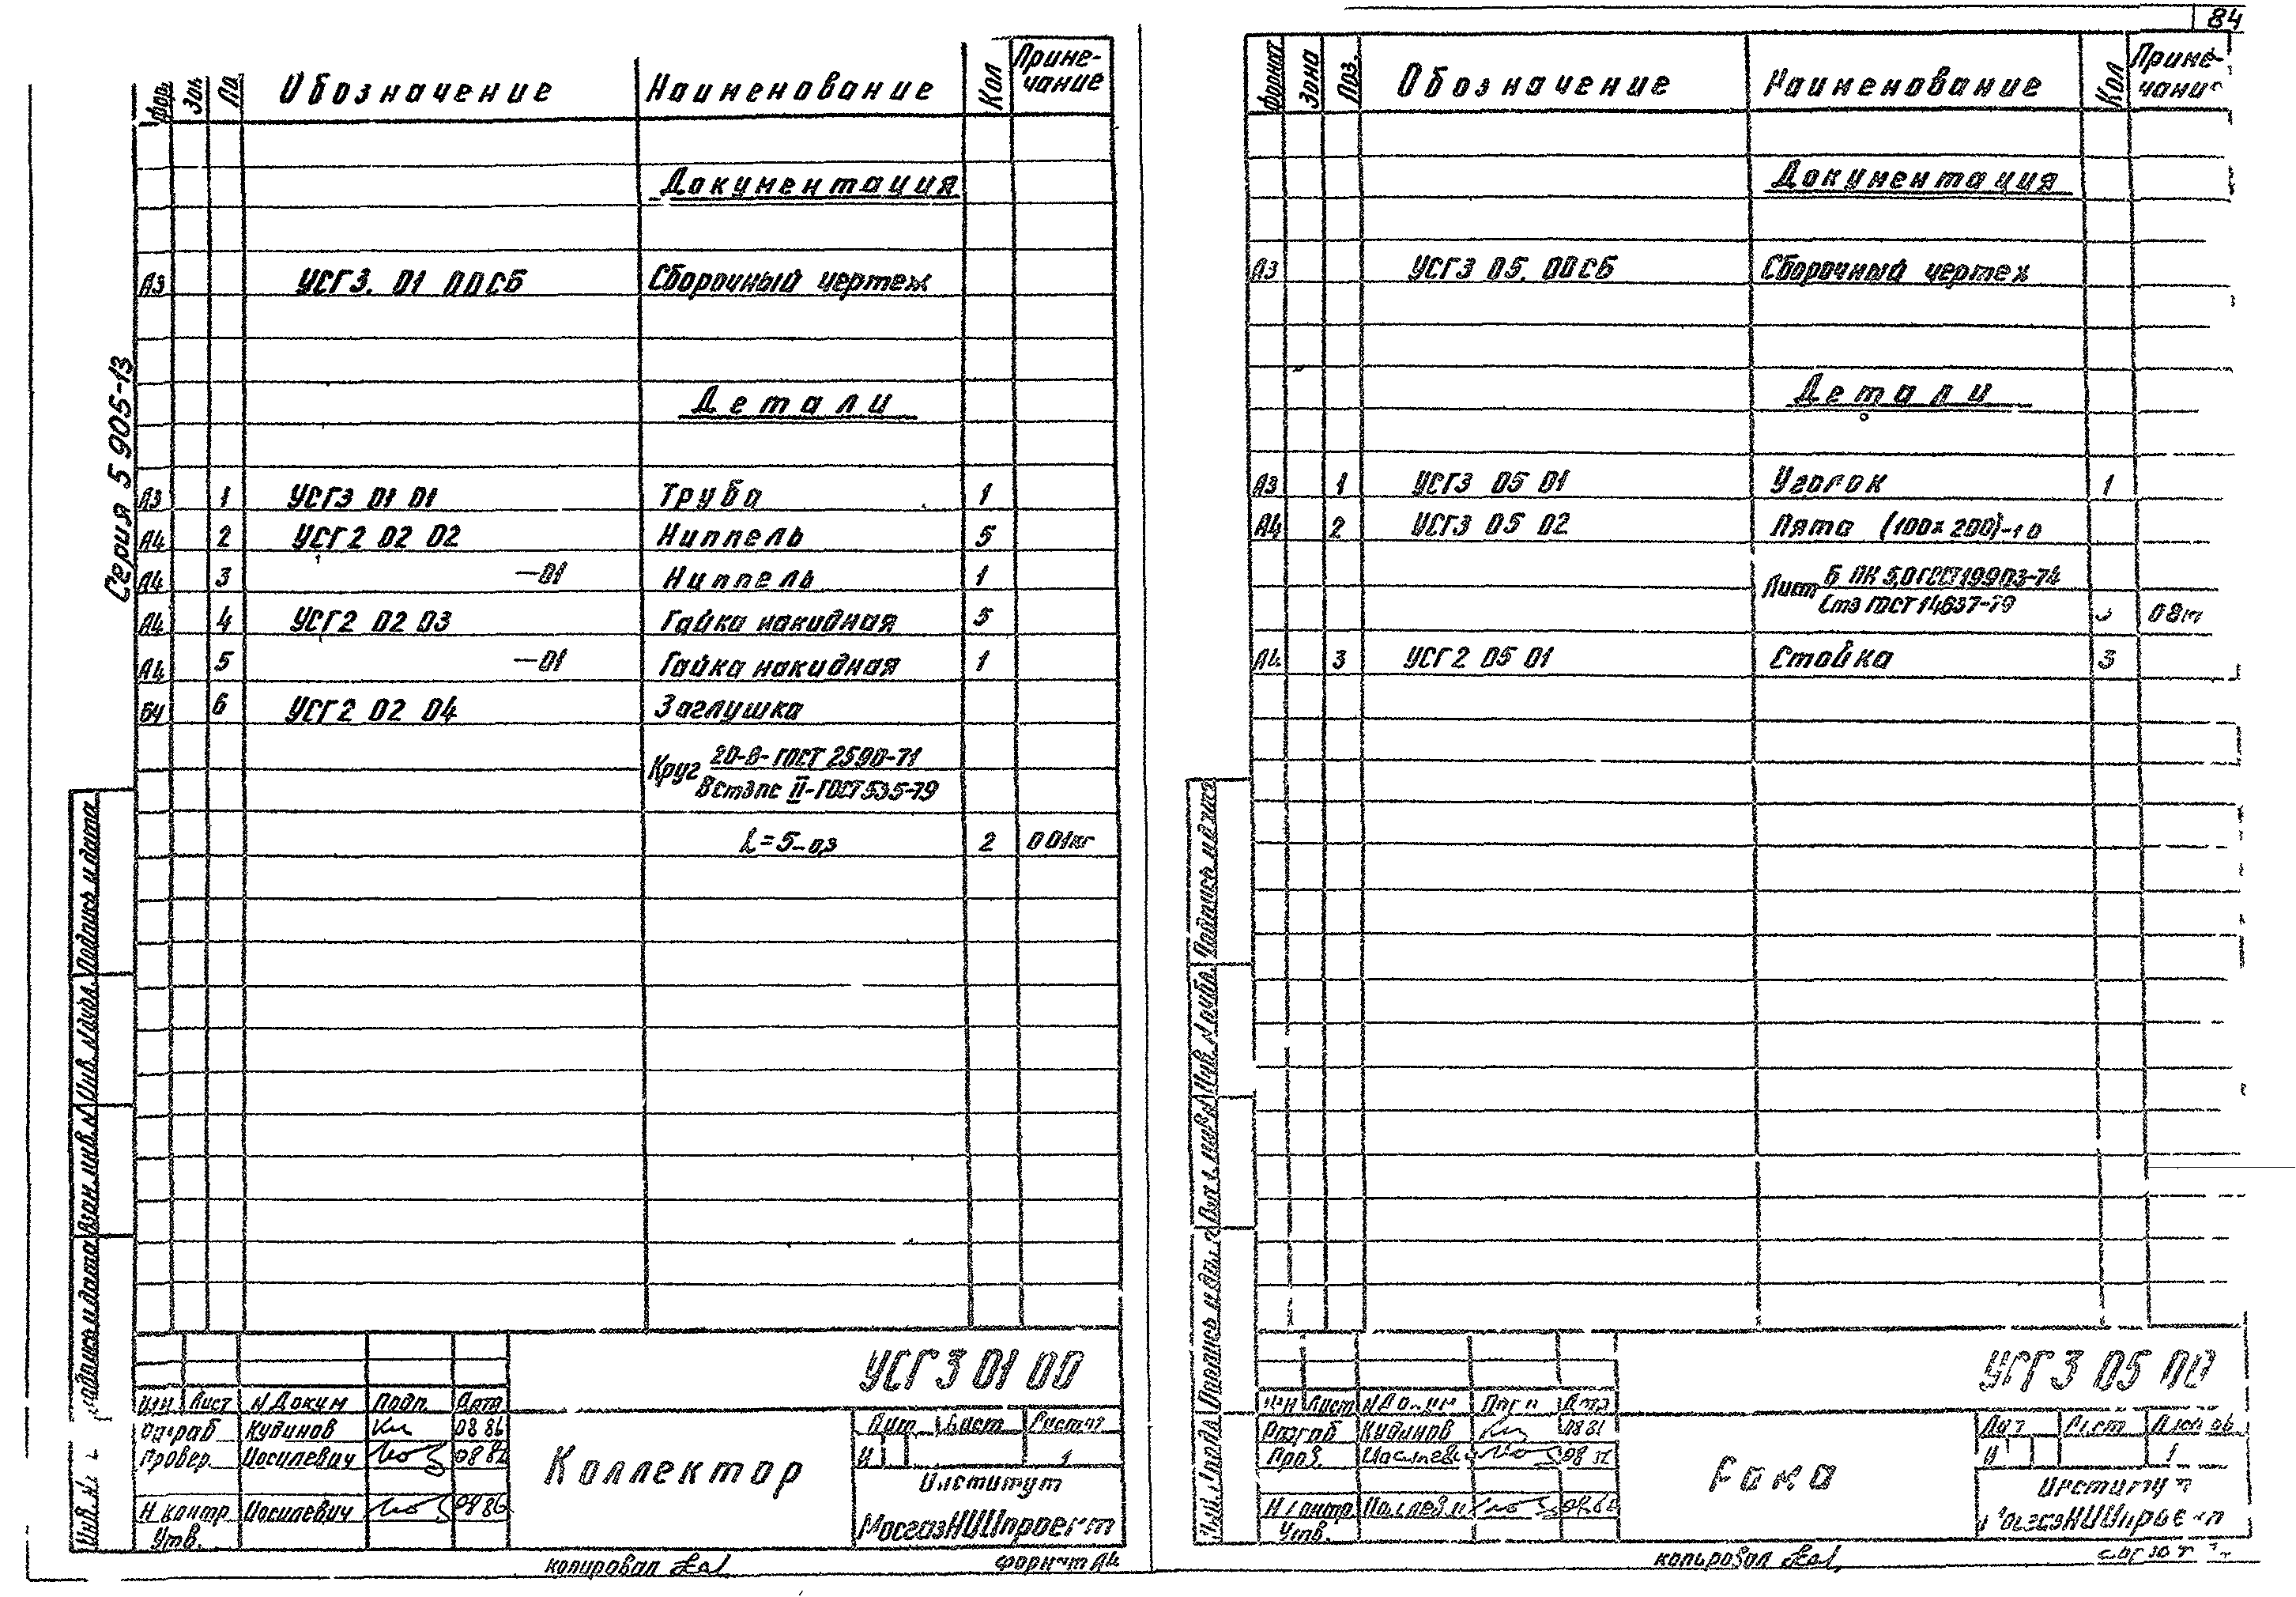 84
Серия 5 905-13
Фор. Зон Па Обозначение Наименование Кол Приме-
чание
Документация
А3 УСГ3. 01 00СБ Сборочный чертеж
Детали
А3 1 УСГ3 01 01 Труба 1
А4 2 УСГ2 02 02 Ниппель 5
А4 3 —01 Ниппель 1
А4 4 УСГ2 02 03 Гайка накидная 5
А4 5 —01 Гайка накидная 1
БЧ 6 УСГ2 02 04 Заглушка
Круг 20-В-ГОСТ 2590-71
ВСт3пс II-ГОСТ 535-79
L=5-0,3 2 0 01кг
Подпись и дата
Инв. N дубл.
Взам. инв. N
Инв. N
УСГ3 01 00
Изм Лист N Докум Подп. Дата
Разраб Кудинов 08 86
Провер. Иосилевич 08 86
Н контр Иосилевич 08 86
Утв.
Коллектор
Лит Лист Листов
И 1
Институт
МосгазНИИпроект
копировал
формат А4
Формат Зона Поз. Обозначение Наименование Кол Приме-
чание
Документация
А3 УСГ3 05. 00СБ Сборочный чертеж
Детали
А3 1 УСГ3 05 01 Уголок 1
А4 2 УСГ3 05 02 Пята (100х200)-1 0
Лист Б ПК 5,0 ГОСТ 19903-74
Ст3 ГОСТ 14637-79 0 8кг
А4 3 УСГ2 05 01 Стойка 3
Подпись и дата
Инв. N дубл.
УСГ3 05 00
Лист
Разраб Кудинов
Пров.
Н контр
Утв.
Рама
Лит Лист
И 1
Институт
МосгазНИИпроект
копировал